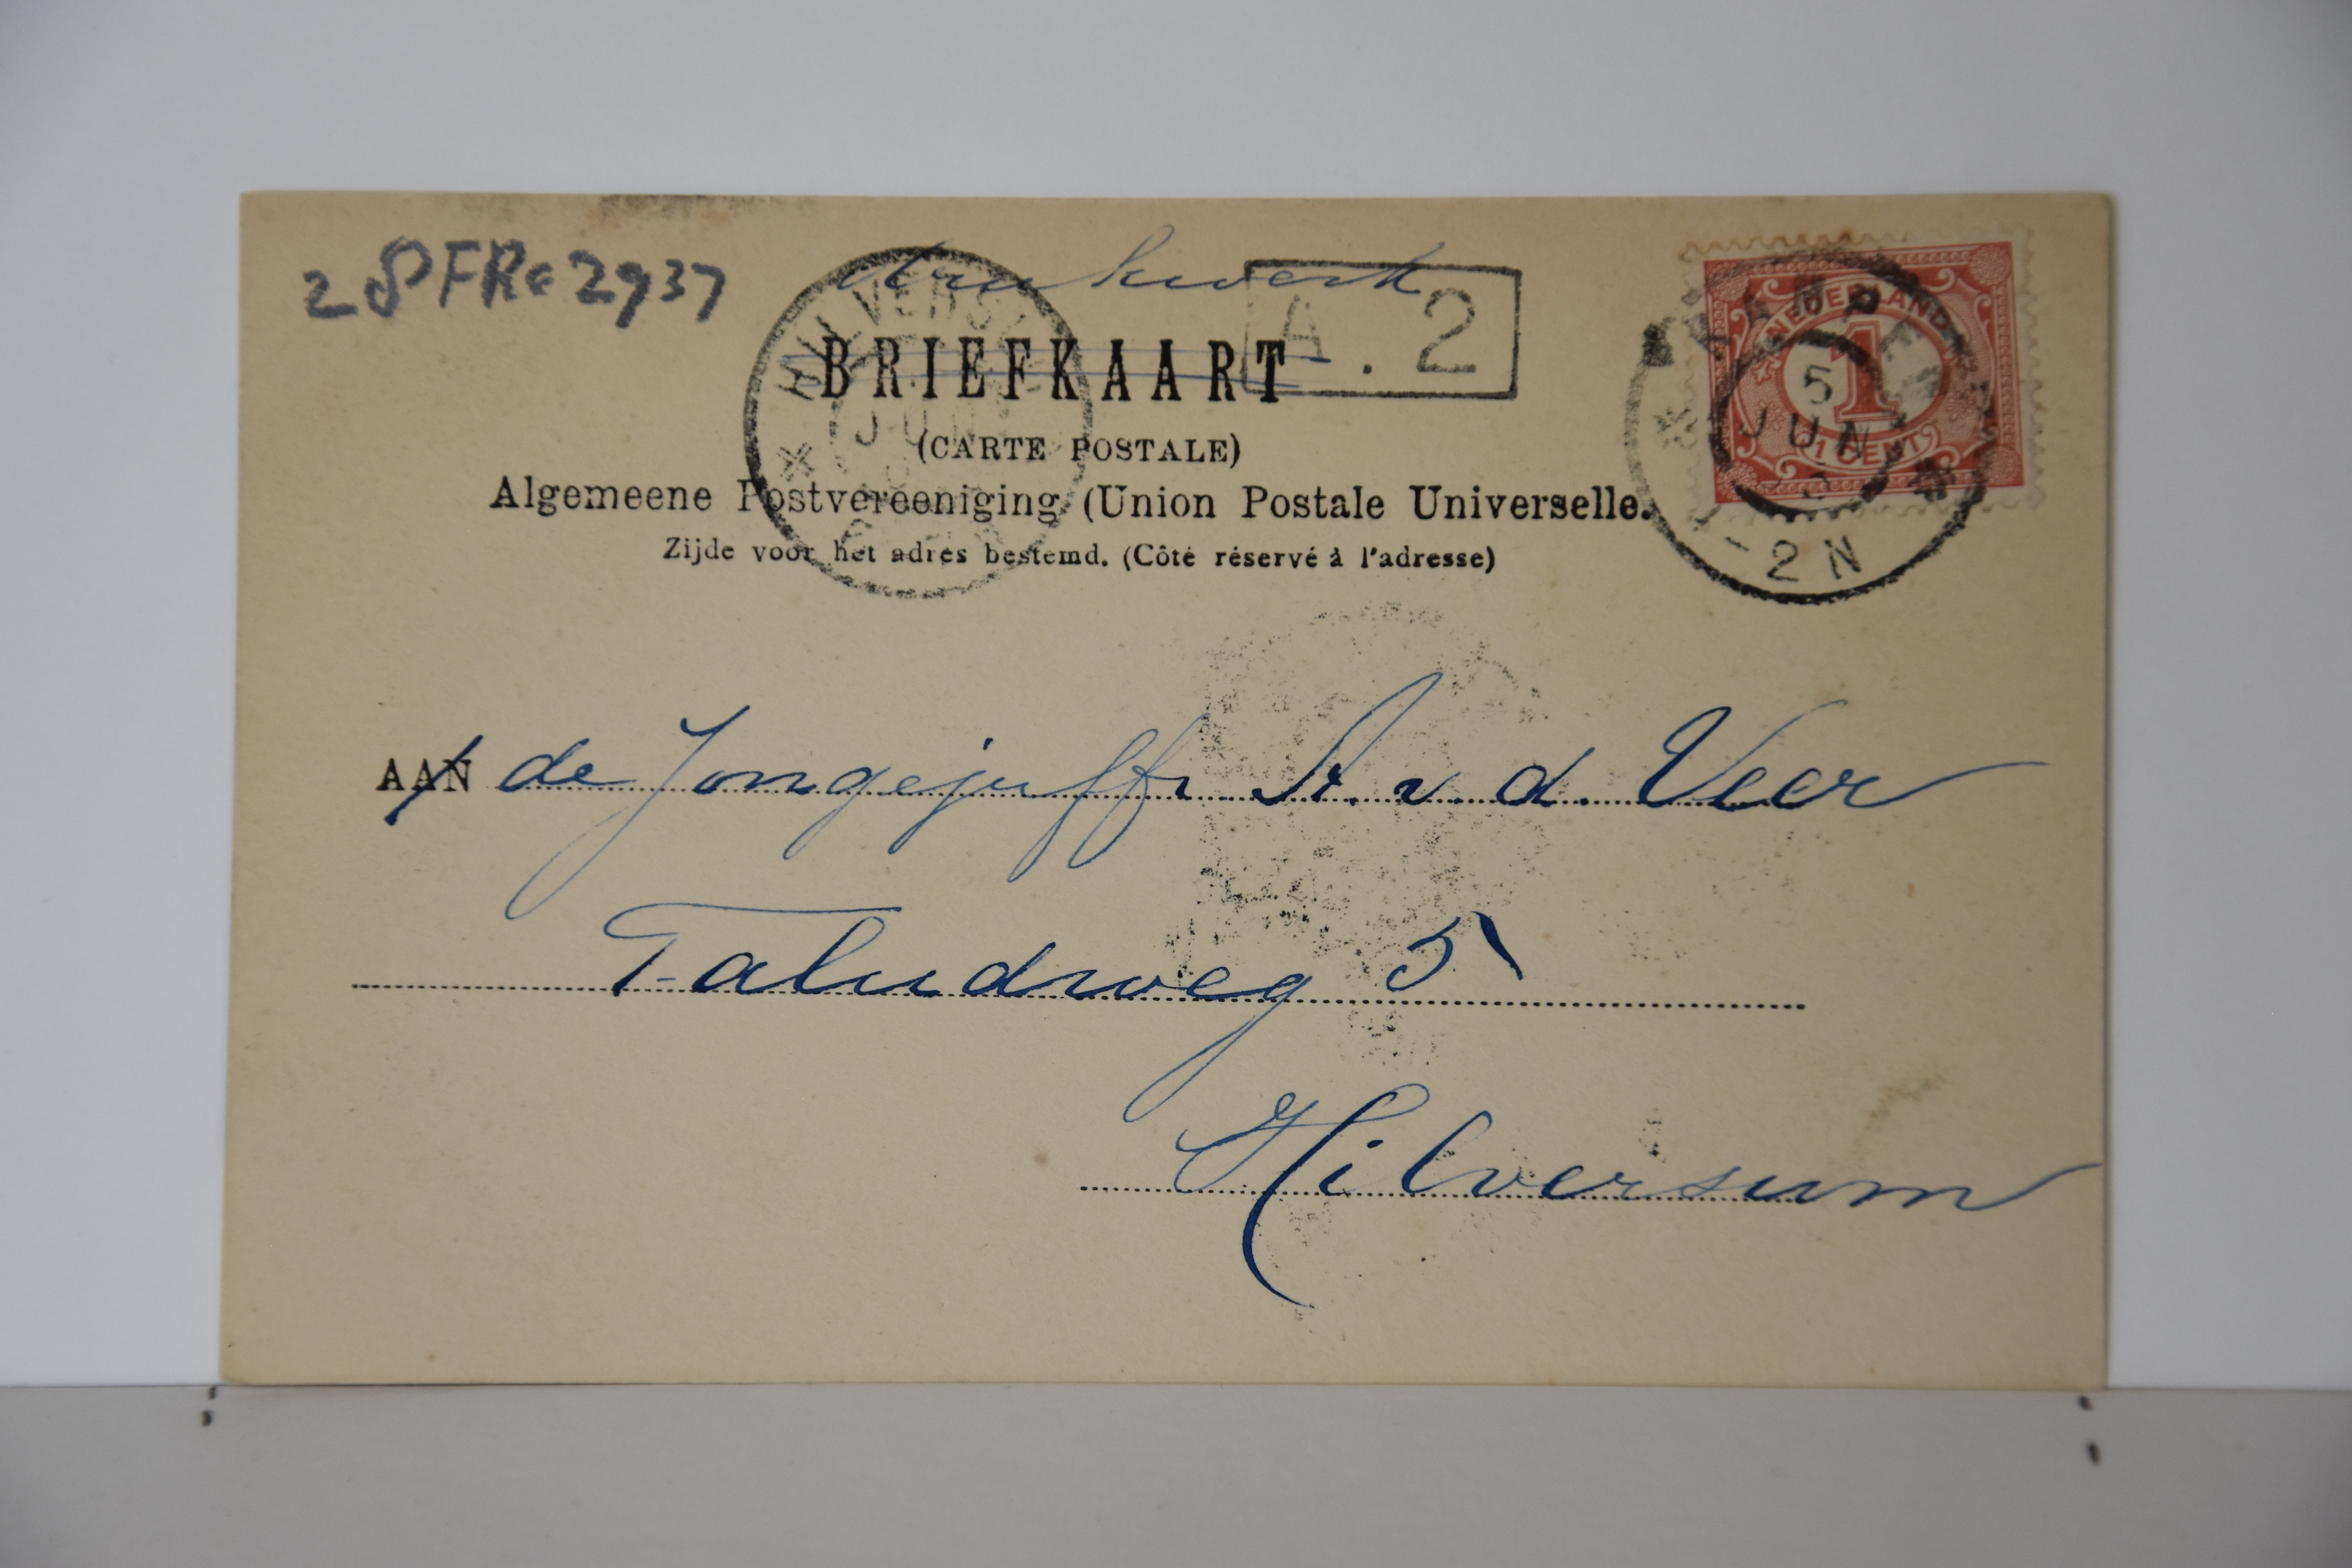 28FRe2937
drukwerk
HILVERSUM
JUN
A. 2
BRIEFKAART
(CARTE POSTALE)
Algemeene Postvereeniging (Union Postale Universelle.
Zijde voor het adres bestemd. (Côté réservé à l'adresse)
NEDERLAND
1
1 CENT
5
JUN
1-2N
AAN de Jongejuffr A. v. d. Veer
Taludweg 5
Hilversum